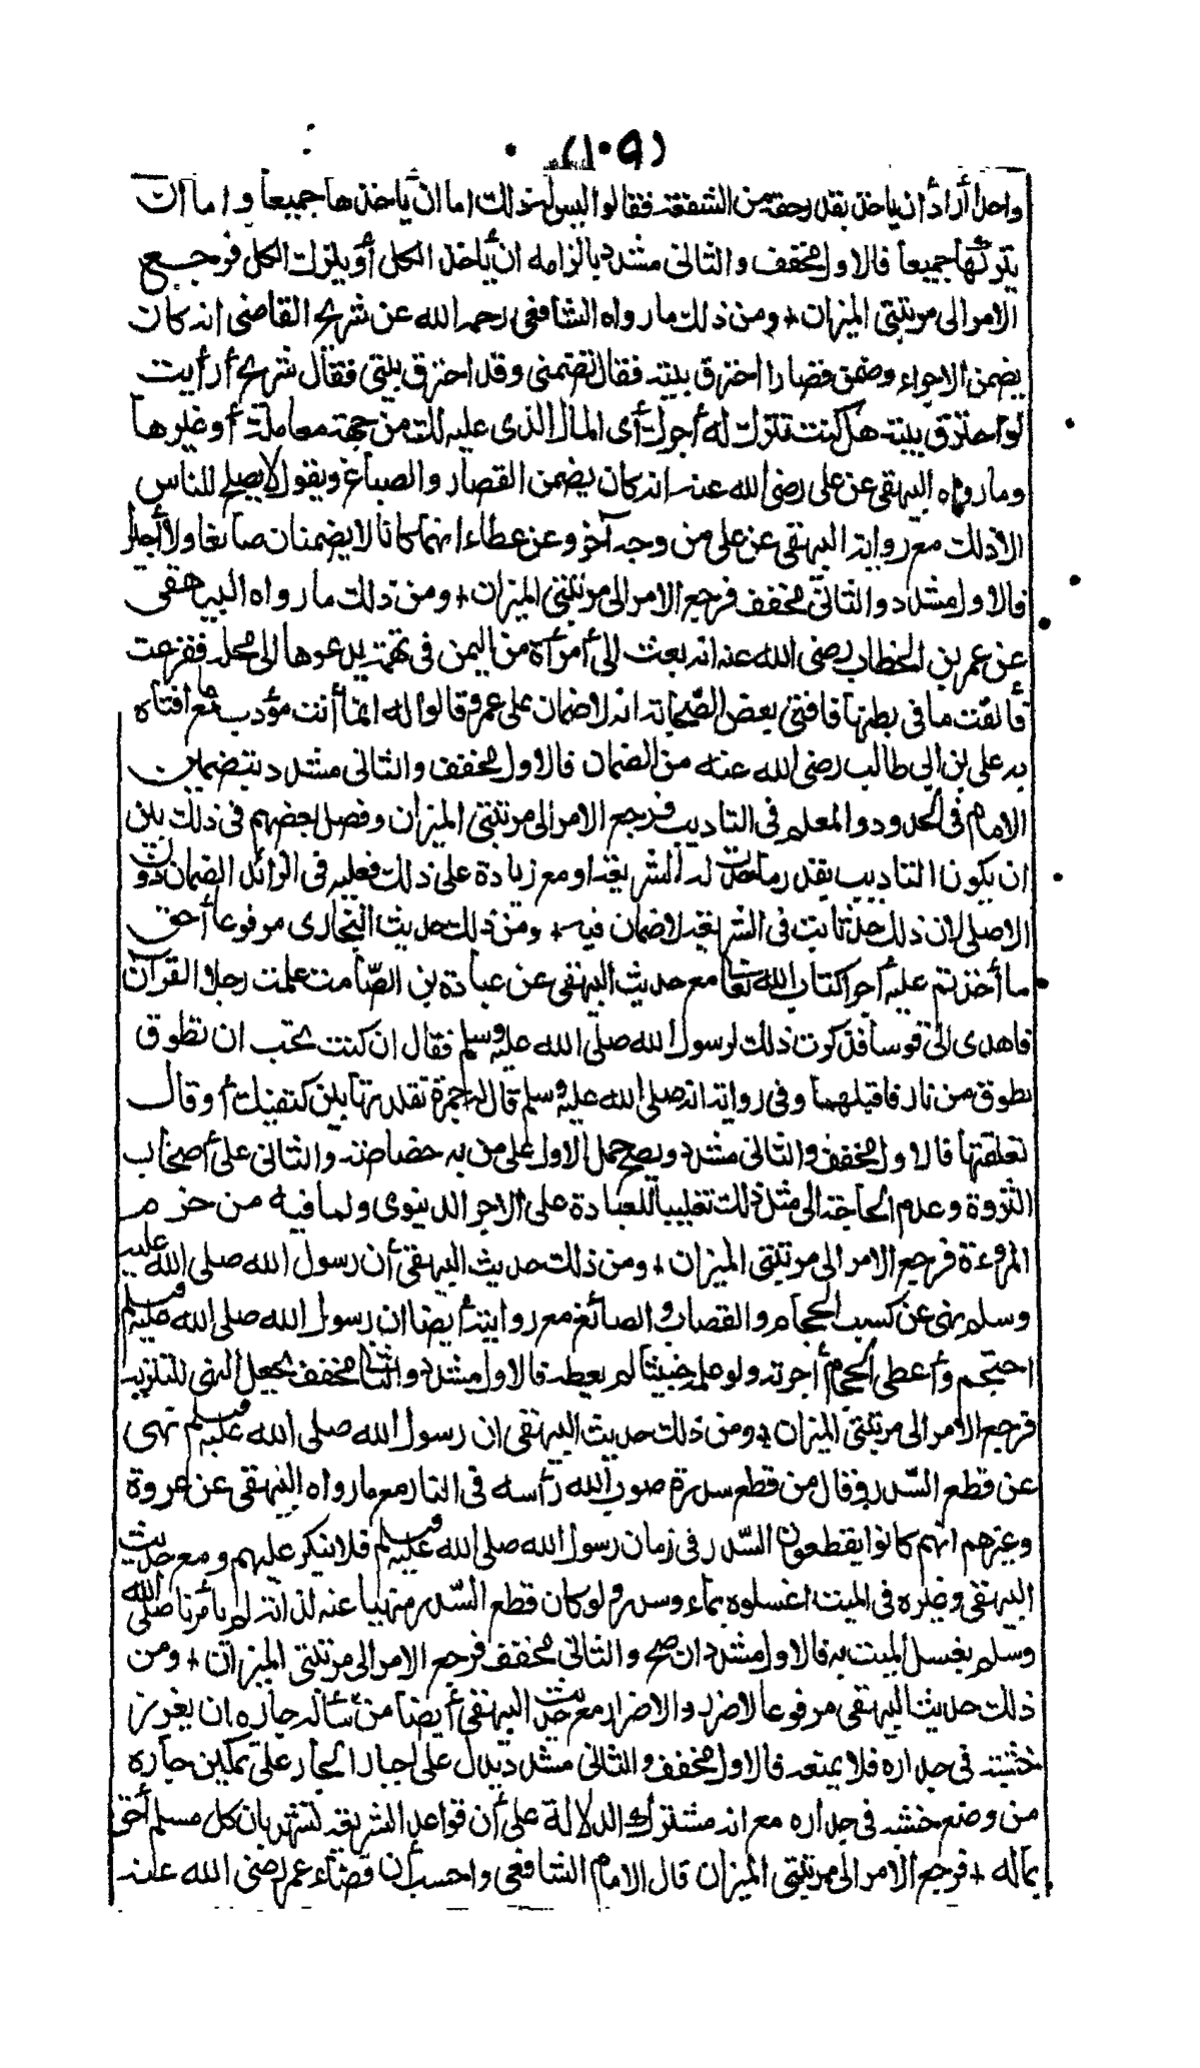 (١٠٩)
واحد أراد ان ياخذ بقدر حقه من الشفعة فقالوا ليس له ذلك اما ان ياخذها جميعا و اما ان
يتركها جميعا فالاول مخفف والثانى مشدد بالزامه ان يأخذ الكل أو يترك الكل فرجع
الامر الى مرتبتى الميزان + ومن ذلك ما رواه الشافعى رحمه الله عن شريح القاضى انه كان
يضمن الاجراء وضمن قصارا احترق بيته فقال تضمننى وقد احترق بيتى فقال شريح أرأيت
لو احترق بيته هل كنت تترك له أجرك أى المال الذى عليه لك من جهة معاملة أو غيرها
وما رواه البيهقى عن على رضى الله عنه انه كان يضمن القصار والصباغ ويقول لا يصلح للناس
الا ذلك مع رواية البيهقى عن على من وجه آخر وعن عطاء انهما كانا لا يضمنان صائغا ولا أجيرا
فالاول مشدد والثانى مخفف فرجع الامر الى مرتبتى الميزان + ومن ذلك ما رواه البيهقى
عن عمر بن الخطاب رضى الله عنه انه بعث الى أمرأة من اليمن فى تهمة يدعوها الى محله ففزعت
فألقت ما فى بطنها فافتى بعض الصحابة انه لا ضمان على عمر وقالوا له انما أنت مؤدب مع ما افتاه
به على بن ابى طالب رضى الله عنه من الضمان فالاول مخفف والثانى مشدد بتضمين
الامام فى الحدود والمعلم فى التاديب فرجع الامر الى مرتبتى الميزان وفصل بعضهم فى ذلك بين
ان يكون التاديب بقدر ما حدت له الشريعة او مع زيادة على ذلك فعليه فى الزائد الضمان دون
الاصلى لان ذلك حد ثابت فى الشريعة لا ضمان فيه + ومن ذلك حديث البخارى مرفوعا أحق
ما أخذتم عليه أجرا كتاب الله تعالى مع حديث البيهقى عن عبادة بن الصامت علمت رجلا القرآن
فاهدى الى قوسا فذكرت ذلك لرسول الله صلى الله عليه وسلم فقال ان كنت تحب ان تطوق
بطوق من نار فاقبلها وفى رواية انه صلى الله عليه وسلم قال له جمرة تقلدتها بين كتفيك أو قال
تعلقتها فالاول مخفف والثانى مشدد ويصح حمل الاول على من به خصاصة والثانى على أصحاب
الثروة وعدم الحاجة الى مثل ذلك تغليبا للعبادة على الاجر الدينوى ولما فيه من خرم
المروءة فرجع الامر الى مرتبتى الميزان + ومن ذلك حديث البيهقى أن رسول الله صلى الله عليه
وسلم نهى عن كسب الحجام والقصاب والصائغ مع روايته أيضا ان رسول الله صلى الله عليه وسلم
احتجم وأعطى الحجام أجرته ولو علمه خبيثا لم يعطه فالاول مشدد والثانى مخفف بجعل النهى للتنزيه
فرجع الامر الى مرتبتى الميزان + ومن ذلك حديث البيهقى ان رسول الله صلى الله عليه وسلم نهى
عن قطع السدر وقال من قطع سدرة صوب الله رأسه فى النار مع ما رواه البيهقى عن عروة
وغيرهم انهم كانوا يقطعون السدر فى زمان رسول الله صلى الله عليه وسلم فلا ينكر عليهم ومع حديث
البيهقى وغيره فى الميت اغسلوه بماء وسدر ولو كان قطع السدر منهيا عنه لذاته لم يأمرنا صلى الله
وسلم بغسل الميت به فالاول مشدد ان صح والثانى مخفف فرجع الامر الى مرتبتى الميزان + ومن
ذلك حديث البيهقى مرفوعا لا ضرر ولا ضرار مع حديث البيهقى أيضا من سأله جاره ان يغرز
خشبته فى جداره فلا يمنعه فالاول مخفف والثانى مشدد يدل على اجبار الجار على تمكين جاره
من وضع خشبه فى جداره مع انه مشترك الدلالة على أن قواعد الشريعة تشهد بان كل مسلم أحق
بماله + فرجع الامر الى مرتبتى الميزان قال الامام الشافعى واحسب أن قضاء عمر رضى الله عنه